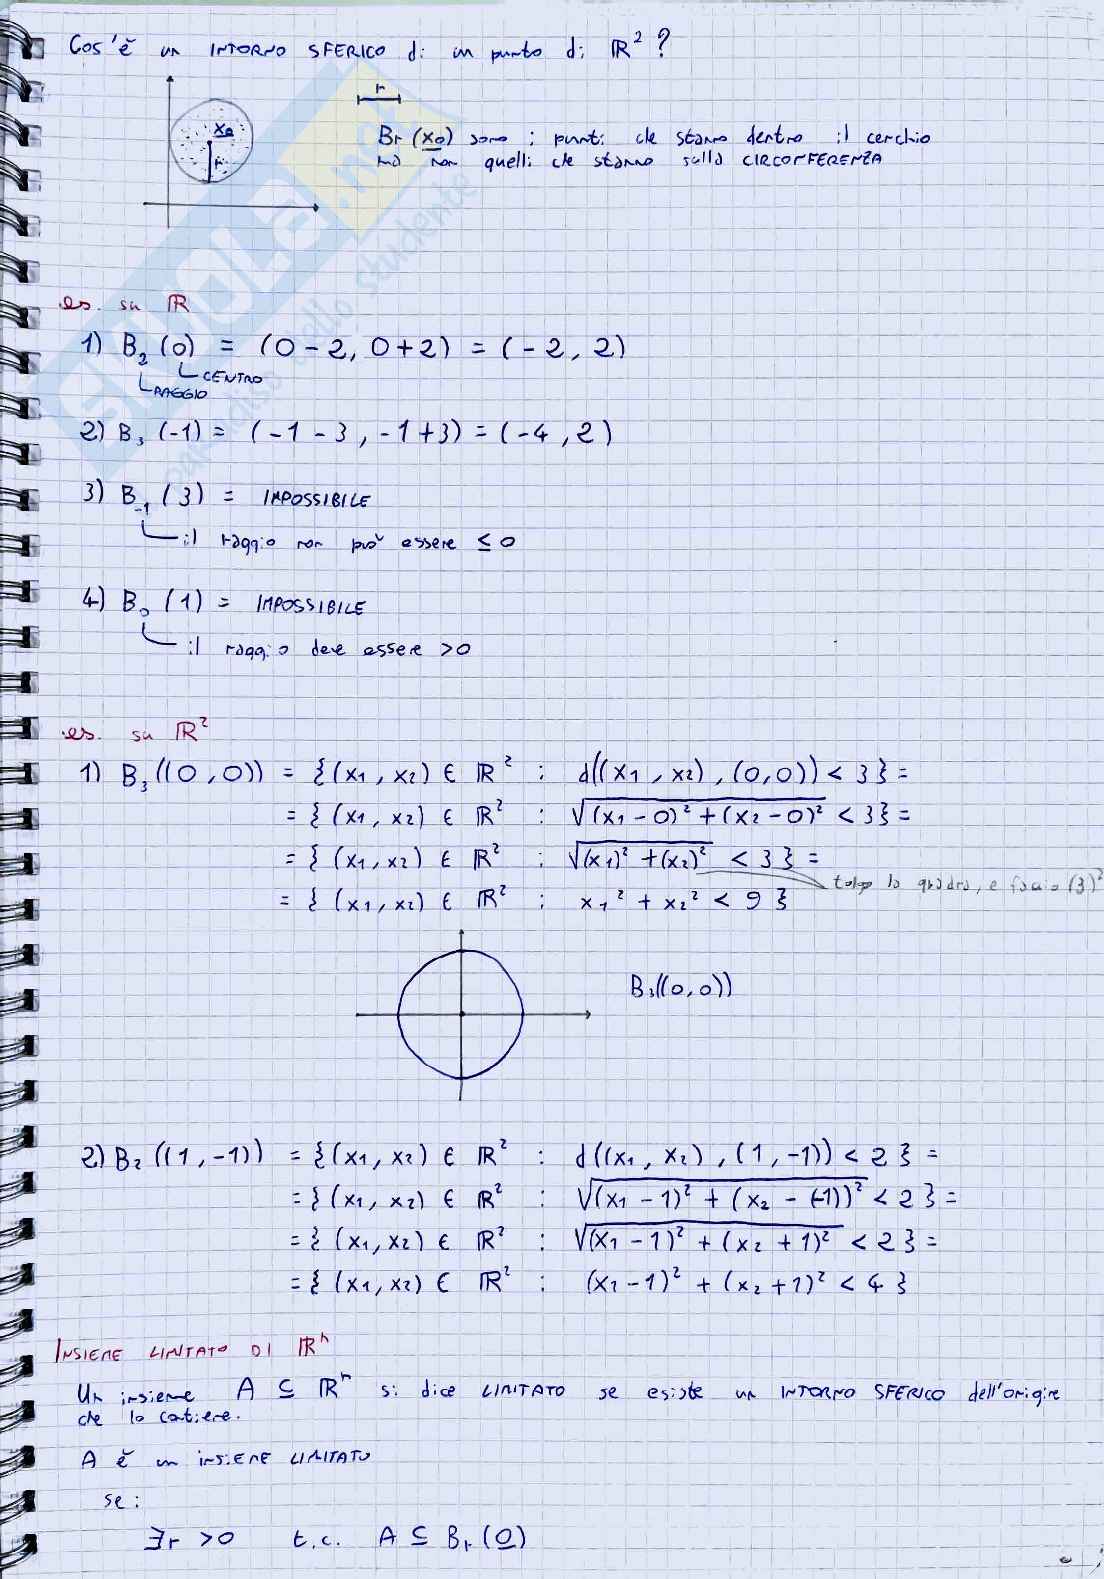 Cos'è un INTORNO SFERICO di un punto di ℝ² ?
r
x₀
r
Br (x₀) sono i punti che stanno dentro il cerchio
ma non quelli che stanno sulla CIRCONFERENZA
es. su ℝ
1) B₂ (0) = (0 - 2, 0 + 2) = (-2, 2)
CENTRO
RAGGIO
2) B₃ (-1) = (-1 - 3, -1 + 3) = (-4, 2)
3) B₋₁ (3) = IMPOSSIBILE
il raggio non può essere ≤ 0
4) B₀ (1) = IMPOSSIBILE
il raggio deve essere > 0
es. su ℝ²
1) B₃ ((0, 0)) = {(x₁, x₂) ∈ ℝ² : d((x₁, x₂), (0,0)) < 3} =
= {(x₁, x₂) ∈ ℝ² : √(x₁ - 0)² + (x₂ - 0)² < 3} =
= {(x₁, x₂) ∈ ℝ² : √(x₁)² + (x₂)² < 3} =
tolgo la quadra, e faccio (3)²
= {(x₁, x₂) ∈ ℝ² : x₁² + x₂² < 9}
B₃((0,0))
2) B₂ ((1, -1)) = {(x₁, x₂) ∈ ℝ² : d((x₁, x₂), (1, -1)) < 2} =
= {(x₁, x₂) ∈ ℝ² : √(x₁ - 1)² + (x₂ - (-1))² < 2} =
= {(x₁, x₂) ∈ ℝ² : √(x₁ - 1)² + (x₂ + 1)² < 2} =
= {(x₁, x₂) ∈ ℝ² : (x₁ - 1)² + (x₂ + 1)² < 4}
INSIEME LIMITATO DI ℝⁿ
Un insieme A ⊆ ℝⁿ si dice LIMITATO se esiste un INTORNO SFERICO dell'origine
che lo contiene.
A è un insieme LIMITATO
se:
∃r > 0 t.c. A ⊆ Br (0)
SKUOLA.net
paradiso dello studente